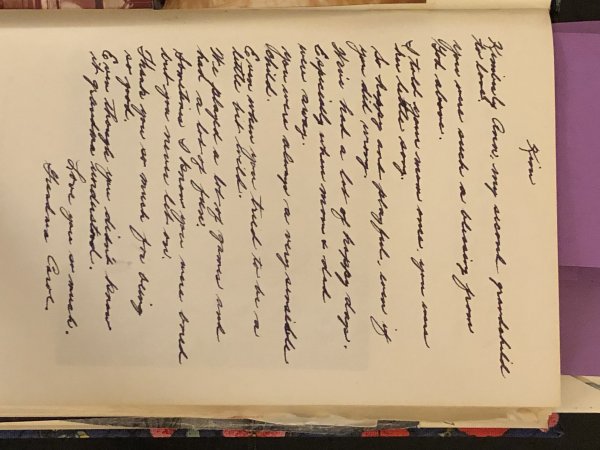 Kim
Kimberly Ann, my second grandchild
to love.
you were such a blessing from
God above.
I told your mom once, you were
her little song.
So happy and playful, even if
you did wrong.
You had a lot of happy days.
Especially when mom & dad
were away.
you were always a very sensible
Child.
Even when you tried to be a
little bit wild.
We played a lot of games and
had a lot of fun.
Sometimes I knew you were bored
but you never let on.
Thank you so much for being
so good.
Even though you didn't know
it grandma understood.
Love you so much.
Grandma Carol.